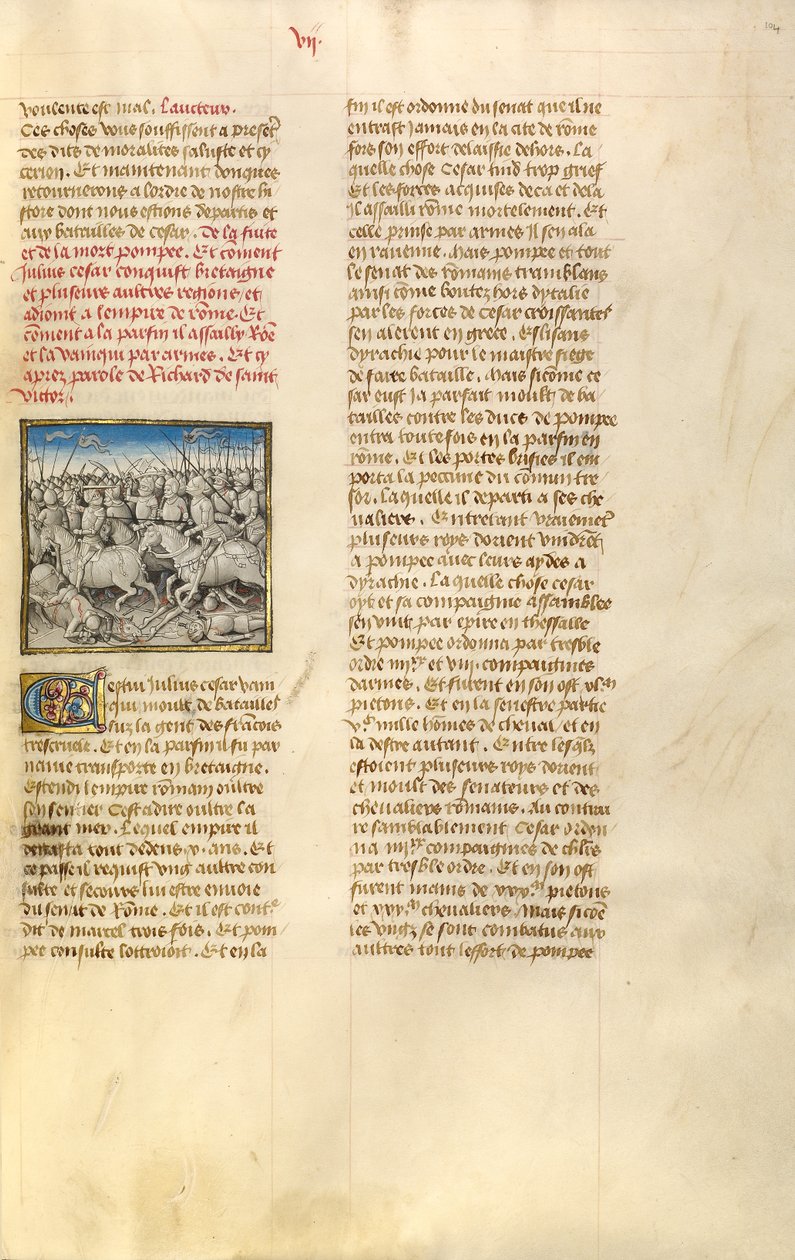 vij.
104
voulente est mal. Laucteur.
Ces choses vous souffisent a presēt
des dits de moralites saluste et cy
ceron. Et maintenant donques
retournerons a lordre de nostre hi
stoire dont nous estions departis et
aux batailles de cesar. De la fuite
et de la mort pompee. Et cōment
Julius cesar conquist bretaigne
et pluseurs aultres regions et
adiomt a lempire de rōme. Et
cōment a la parfin il assailly Rōe
et la vainqui par armes. Et cy
aprez parole de Richard de saint
victor.
Cestui Julius cesar vain
qui moult de batailles
suz la gent des francois
trescruele. Et en la parfin il fu par
nauie transporte en bretaigne.
Estendi lempire rōmain oultre
son sentier Cest adire oultre la
grant mer. Lequel empire il
degasta tout dedens v. ans. Et
ce passe il requist vng aultre con
sulte et secours lui estre enuoie
du senat de Rōme. Et il est cont
dit de marcel trois fois. Et pom
pee consulte lottroioit. Et en la
fin il est ordonne du senat que il ne
entrast Jamais en la cite de rōme
fors son effort delaissie dehors. La
quelle chose Cesar tind trop grief
Et les forces acquises deca et dela
Il assailli rōme mortelement. Et
celle prinse par armes Il sen ala
en rauenne. Mais pompee et tout
le senat des rōmains tramblans
ainsi cōme boutez hors dytalie
par les forces de Cesar croissantes
sen alerent en grece. Eslisans
dyrachie pour le maistre siege
de faire bataille. Mais sicōme ce
sar eust Ja parfait moult de ba
tailles contre les ducs de pompee
entra toutefois en la parfin en
rōme. Et les portes brisies il em
porta la peccune du cōmun tre
sor. Laquelle il departi a ses che
ualiers. Entretant vraiemēt
pluseurs roys dorient vindrēt
a pompee auec leurs aydes a
dyrachie. La quelle chose cesar
oyt et sa compaignie assamblee
sen vint par epire en thessalle
Et pompee ordonna par treble
ordre iiij et viij. compaignies
darmes. Et furent en son ost xl
pietons. Et en la senestre partie
v mille hōmes de cheual et en
la destre autant. Entre lesqlz
estoient pluseurs roys dorient
et moult des senateurs et des
cheualiers rōmains. Au contrai
re samblablement Cesar ordon
na iiij compaignies de chlrs
par treble ordre. Et en son ost
furent mains de xxx pietons
et xxx cheualiers. Mais sicōe
les vngz se sont combatus aux
aultres tout leffort de pompee